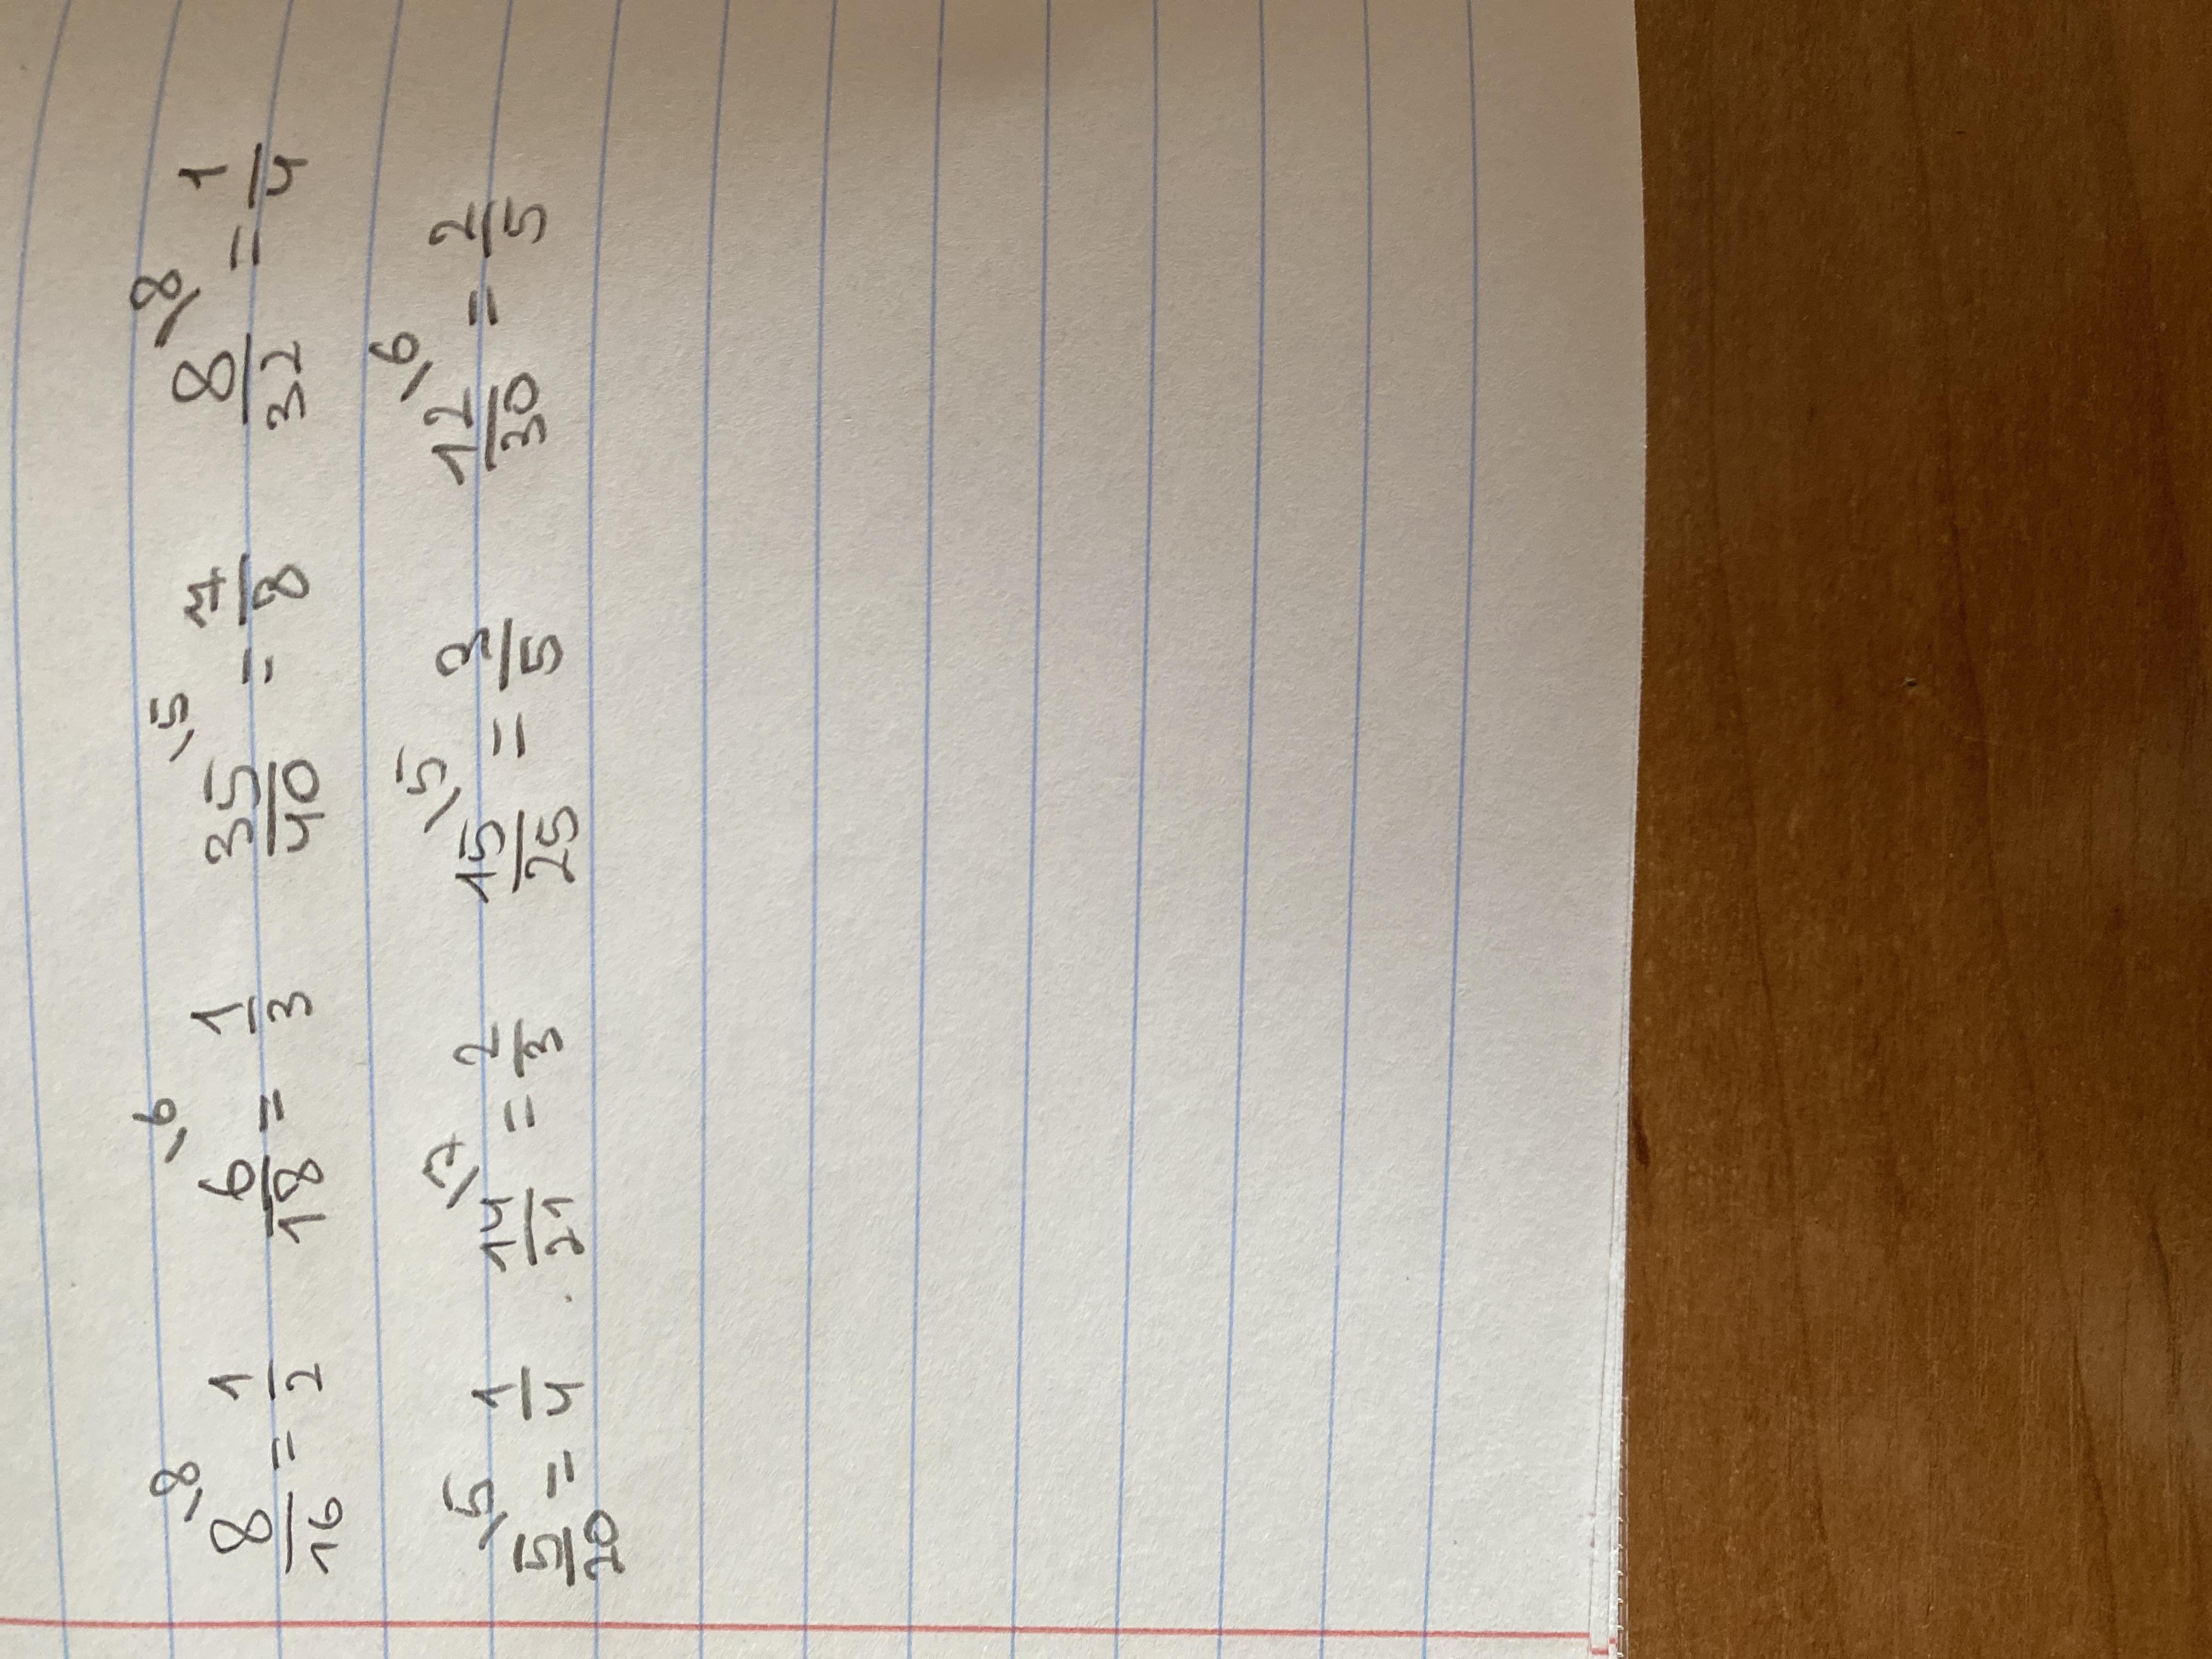 8/16 \8 = 1/2 6/18 \6 = 1/3 35/40 \5 = 7/8 8/32 \8 = 1/4
5/20 \5 = 1/4 14/21 \7 = 2/3 15/25 \5 = 3/5 12/30 \6 = 2/5